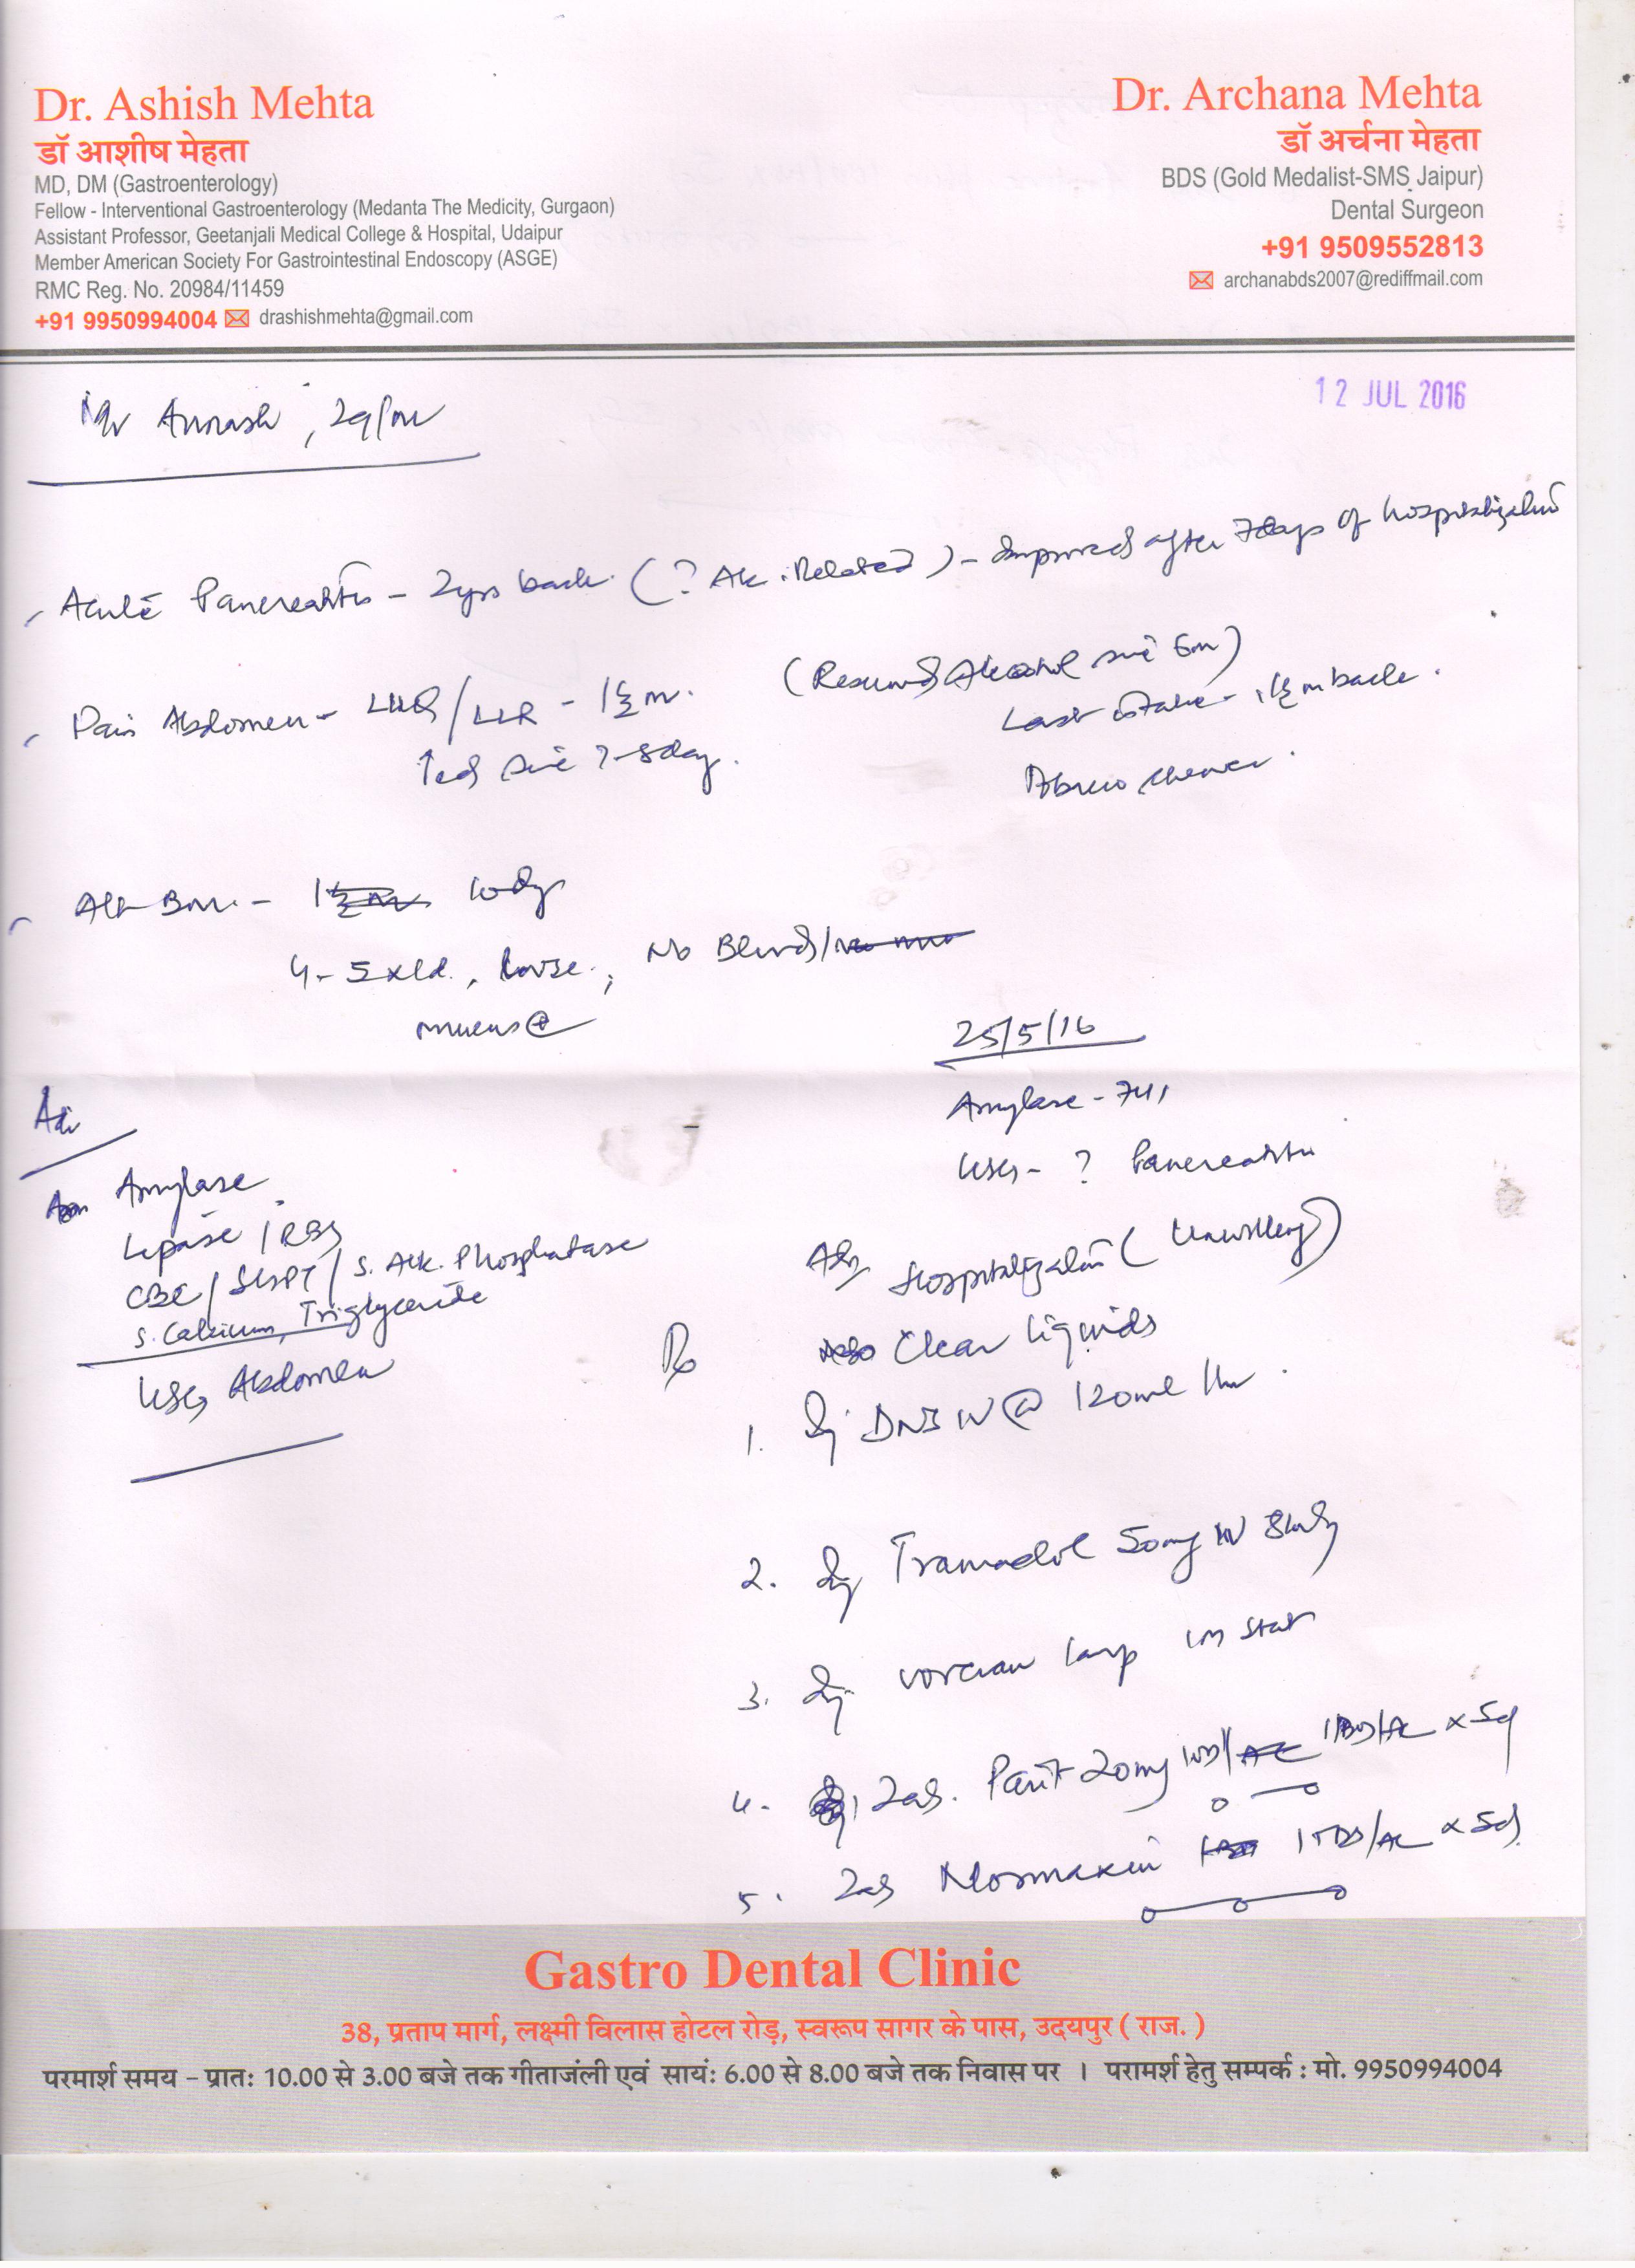 Dr. Ashish Mehta
डॉ आशीष मेहता
MD, DM (Gastroenterology)
Fellow - Interventional Gastroenterology (Medanta The Medicity, Gurgaon)
Assistant Professor, Geetanjali Medical College & Hospital, Udaipur
Member American Society For Gastrointestinal Endoscopy (ASGE)
RMC Reg. No. 20984/11459
+91 9950994004 drashishmehta@gmail.com
Dr. Archana Mehta
डॉ अर्चना मेहता
BDS (Gold Medalist-SMS Jaipur)
Dental Surgeon
+91 9509552813
archanabds2007@rediffmail.com
12 JUL 2016
Mr , 29/m
Acute Pancreatitis - 2yrs back (? Alc. Related) - Improved after 7days of hospitalization
(Resumed Alcohol since 6m)
Pain Abdomen - LUQ/ - 1½m.
Last intake - 1½m back.
↑ed since 7-8day.
Tobacco chewer.
Alt Bm. - 10dys
4-5x/d, loose, No Blood/
mucus ⊕
25/5/16
Amylase - 741
USG - ? Pancreatitis
Adv
Amylase
Lipase / RBS
CBC / SGPT / S. Alk. Phosphatase
S. Calcium, Triglyceride
USG Abdomen
Adv Hospitalization (Unwilling)
Rx
Clear liquids
1. Inj DNS IV @ 120ml/hr.
2. Inj Tramadol 50mg IV
3. Inj Voveran 1amp IM stat
4. Tab. Pant 20mg 1BD/AC x 5d
5. Tab Normaxin 1TDS/AC x 5d
Gastro Dental Clinic
38, प्रताप मार्ग, लक्ष्मी विलास होटल रोड़, स्वरूप सागर के पास, उदयपुर ( राज. )
परमार्श समय – प्रातः 10.00 से 3.00 बजे तक गीताजंली एवं सायं: 6.00 से 8.00 बजे तक निवास पर । परामर्श हेतु सम्पर्क : मो. 9950994004